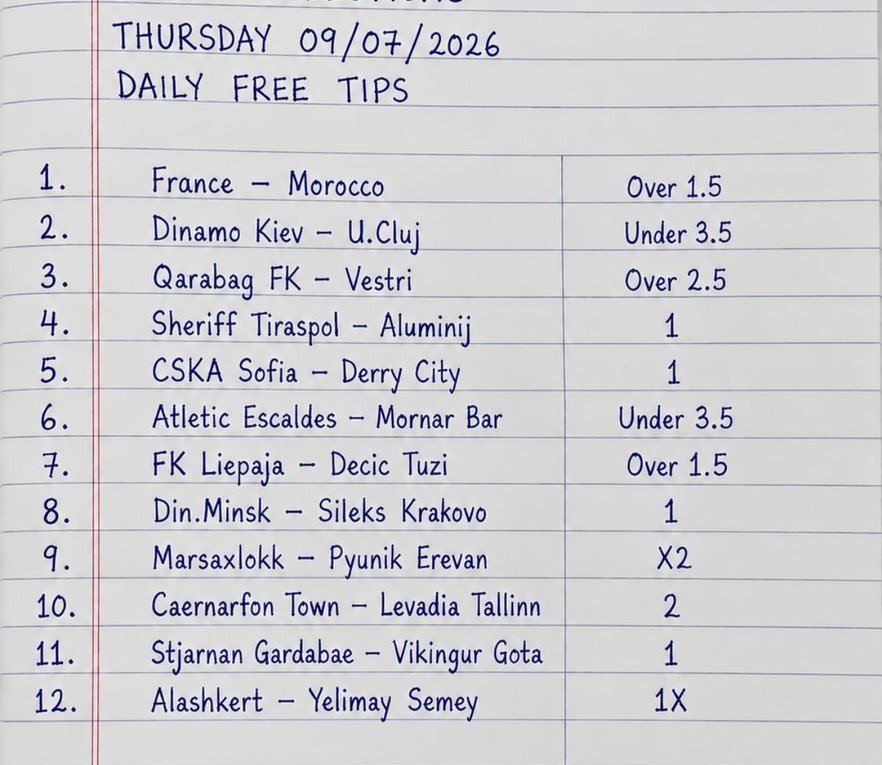 THURSDAY 09/07/2026
DAILY FREE TIPS
1. France – Morocco Over 1.5
2. Dinamo Kiev – U.Cluj Under 3.5
3. Qarabag FK – Vestri Over 2.5
4. Sheriff Tiraspol – Aluminij 1
5. CSKA Sofia – Derry City 1
6. Atletic Escaldes – Mornar Bar Under 3.5
7. FK Liepaja – Decic Tuzi Over 1.5
8. Din.Minsk – Sileks Krakovo 1
9. Marsaxlokk – Pyunik Erevan X2
10. Caernarfon Town – Levadia Tallinn 2
11. Stjarnan Gardabae – Vikingur Gota 1
12. Alashkert – Yelimay Semey 1X